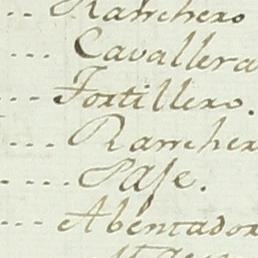 Ranchero
Cavallera
Tortillero.
Rancher
Paje.
Abentador